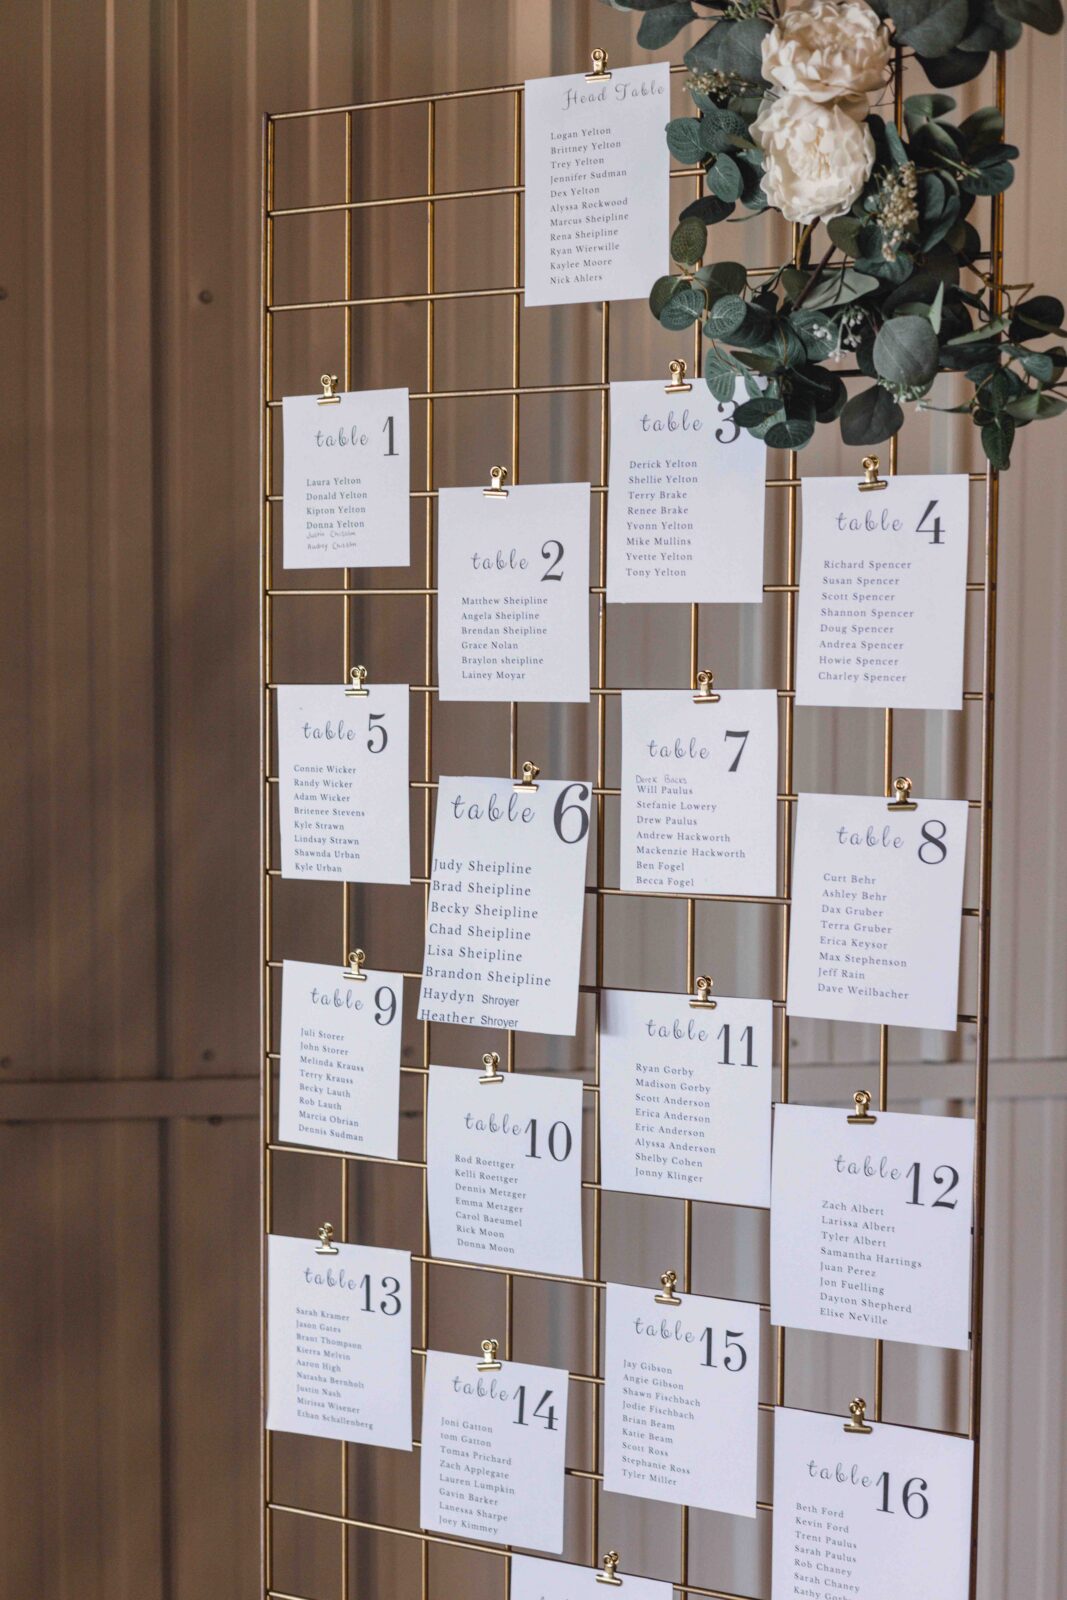 Head Table
Logan Yelton
Brittney Yelton
Trey Yelton
Jennifer Sudman
Dex Yelton
Alyssa Rockwood
Marcus Sheipline
Rena Sheipline
Ryan Wierwille
Kaylee Moore
Nick Ahlers
table 1
Laura Yelton
Donald Yelton
Kipton Yelton
Donna Yelton
Justin Chisolm
Audrey Chisolm
table 2
Matthew Sheipline
Angela Sheipline
Brendan Sheipline
Grace Nolan
Braylon sheipline
Lainey Moyar
table 3
Derick Yelton
Shellie Yelton
Terry Brake
Renee Brake
Yvonn Yelton
Mike Mullins
Yvette Yelton
Tony Yelton
table 4
Richard Spencer
Susan Spencer
Scott Spencer
Shannon Spencer
Doug Spencer
Andrea Spencer
Howie Spencer
Charley Spencer
table 5
Connie Wicker
Randy Wicker
Adam Wicker
Britenee Stevens
Kyle Strawn
Lindsay Strawn
Shawnda Urban
Kyle Urban
table 6
Judy Sheipline
Brad Sheipline
Becky Sheipline
Chad Sheipline
Lisa Sheipline
Brandon Sheipline
Haydyn Shroyer
Heather Shroyer
table 7
Derek Backs
Will Paulus
Stefanie Lowery
Drew Paulus
Andrew Hackworth
Mackenzie Hackworth
Ben Fogel
Becca Fogel
table 8
Curt Behr
Ashley Behr
Dax Gruber
Terra Gruber
Erica Keysor
Max Stephenson
Jeff Rain
Dave Weilbacher
table 9
Juli Storer
John Storer
Melinda Krauss
Terry Krauss
Becky Lauth
Rob Lauth
Marcia Obrian
Dennis Sudman
table 10
Rod Roettger
Kelli Roettger
Dennis Metzger
Emma Metzger
Carol Baeumel
Rick Moon
Donna Moon
table 11
Ryan Gorby
Madison Gorby
Scott Anderson
Erica Anderson
Eric Anderson
Alyssa Anderson
Shelby Cohen
Jonny Klinger
table 12
Zach Albert
Larissa Albert
Tyler Albert
Samantha Hartings
Juan Perez
Jon Fuelling
Dayton Shepherd
Elise NeVille
table 13
Sarah Kramer
Jason Gates
Brant Thompson
Kierra Melvin
Aaron High
Natasha Bernholt
Justin Nash
Mirissa Wisener
Ethan Schallenberg
table 14
Joni Gatton
tom Gatton
Tomas Prichard
Zach Applegate
Lauren Lumpkin
Gavin Barker
Lanessa Sharpe
Joey Kimmey
table 15
Jay Gibson
Angie Gibson
Shawn Fischbach
Jodie Fischbach
Brian Beam
Katie Beam
Scott Ross
Stephanie Ross
Tyler Miller
table 16
Beth Ford
Kevin Ford
Trent Paulus
Sarah Paulus
Rob Chaney
Sarah Chaney
Kathy